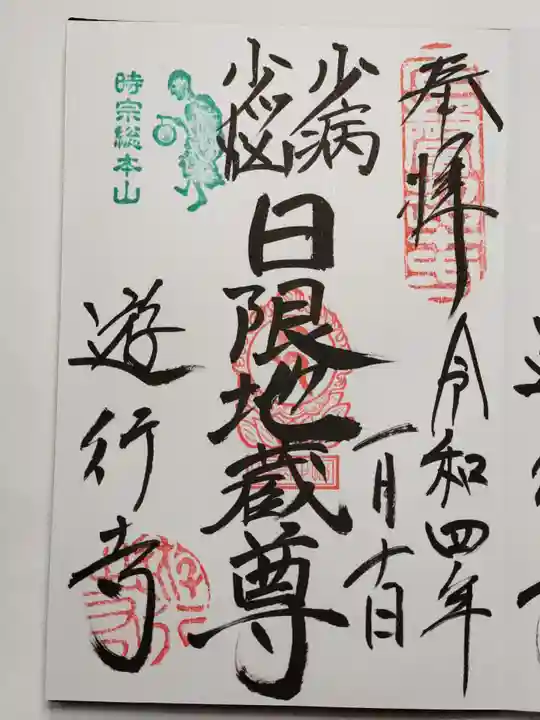 奉拝
令和四年
一月十日
少病
少悩
日限地蔵尊
時宗総本山
遊行寺